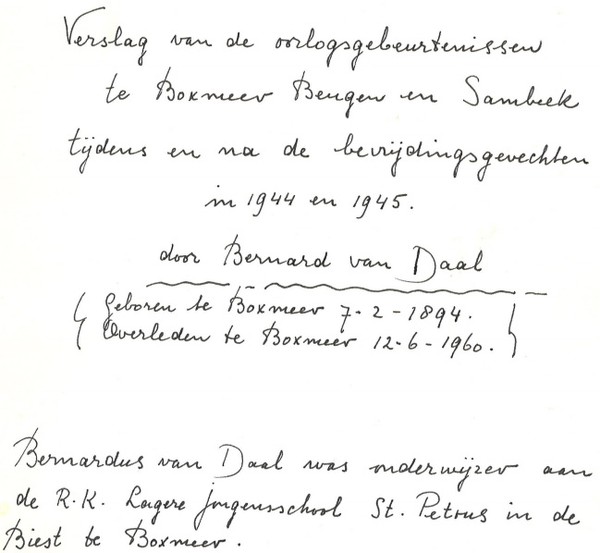 Verslag van de oorlogsgebeurtenissen
te Boxmeer Beugen en Sambeek
tijdens en na de bevrijdingsgevechten
in 1944 en 1945.
door Bernard van Daal
Geboren te Boxmeer 7-2-1894.
Overleden te Boxmeer 12-6-1960.
Bernardus van Daal was onderwijzer aan
de R.K. Lagere Jongensschool St. Petrus in de
Biest te Boxmeer.